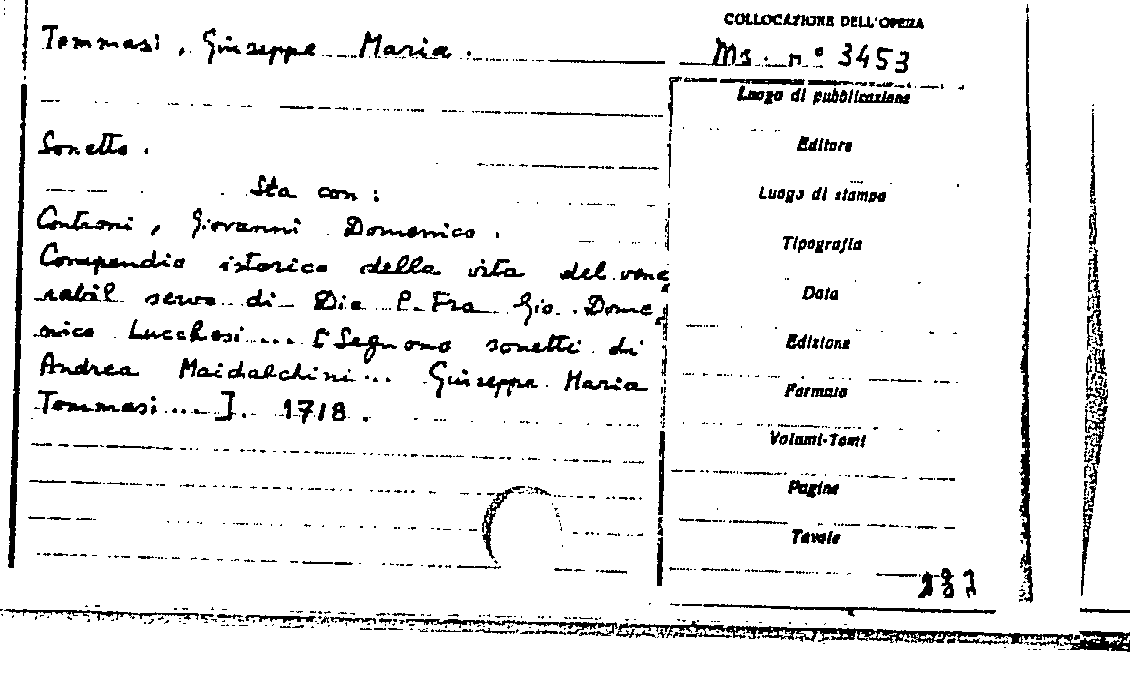 Tommasi, Giuseppe Maria.
Sonetto.
Sta con:
Controni, Giovanni Domenico.
Compendio istorico della vita del vene,
rabil servo di Dio P. Fra Gio. Dome,
nico Lucchesi.... [Seguono sonetti di
Andrea Maidalchini... Giuseppe Maria
Tommasi....]. 1718.
COLLOCAZIONE DELL'OPERA
Ms. n° 3453
Luogo di pubblicazione
Editore
Luogo di stampa
Tipografia
Data
Edizione
Formato
Volumi-Tomi
Pagine
Tavole